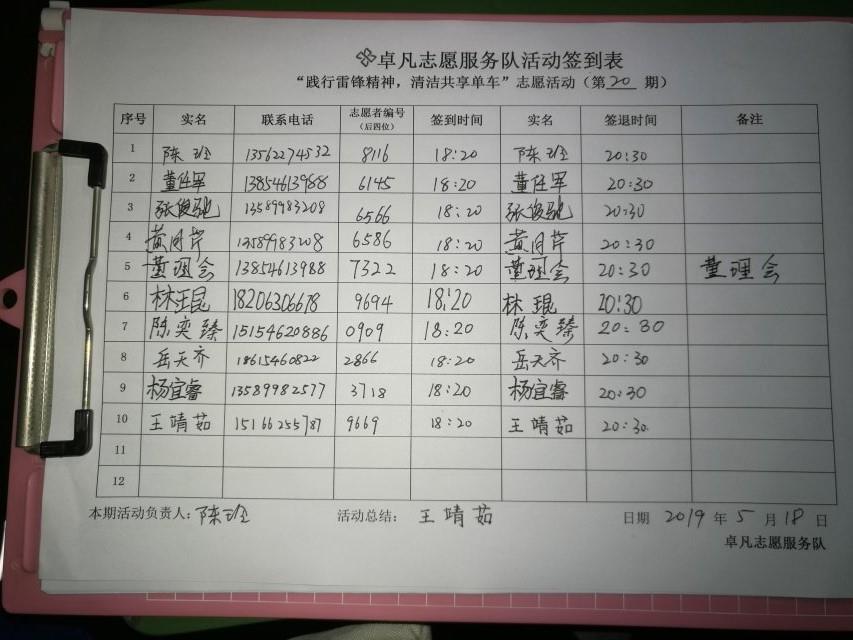 卓凡志愿服务队活动签到表
“践行雷锋精神，清洁共享单车”志愿活动（第20期）
序号 实名 联系电话 志愿者编号（后四位） 签到时间 实名 签退时间 备注
1 陈玲 13562274532 8116 18:20 陈玲 20:30
2 董任军 13854613988 6145 18:20 董任军 20:30
3 张俊驰 13589983208 6566 18:20 张俊驰 20:30
4 黄月芹 13589983208 6586 18:20 黄月芹 20:30
5 董理会 13854613988 7322 18:20 董理会 20:30 董理会
6 林琨 18206306678 9694 18:20 林琨 20:30
7 陈奕臻 15154620886 0909 18:20 陈奕臻 20:30
8 岳天齐 18615460822 2866 18:20 岳天齐 20:30
9 杨宜睿 13589982577 3718 18:20 杨宜睿 20:30
10 王靖茹 15166255787 9669 18:20 王靖茹 20:30
11
12
本期活动负责人：陈玲 活动总结： 王靖茹 日期 2019年5月18日
卓凡志愿服务队